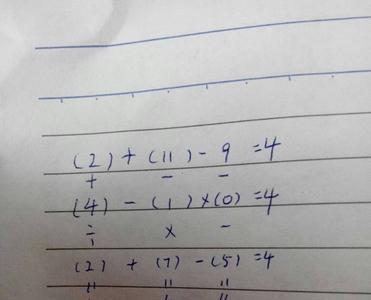 (2) + (11) - 9 = 4
+ - -
(4) - (1) × (0) = 4
÷ × -
(2) + (7) - (5) = 4
" " "